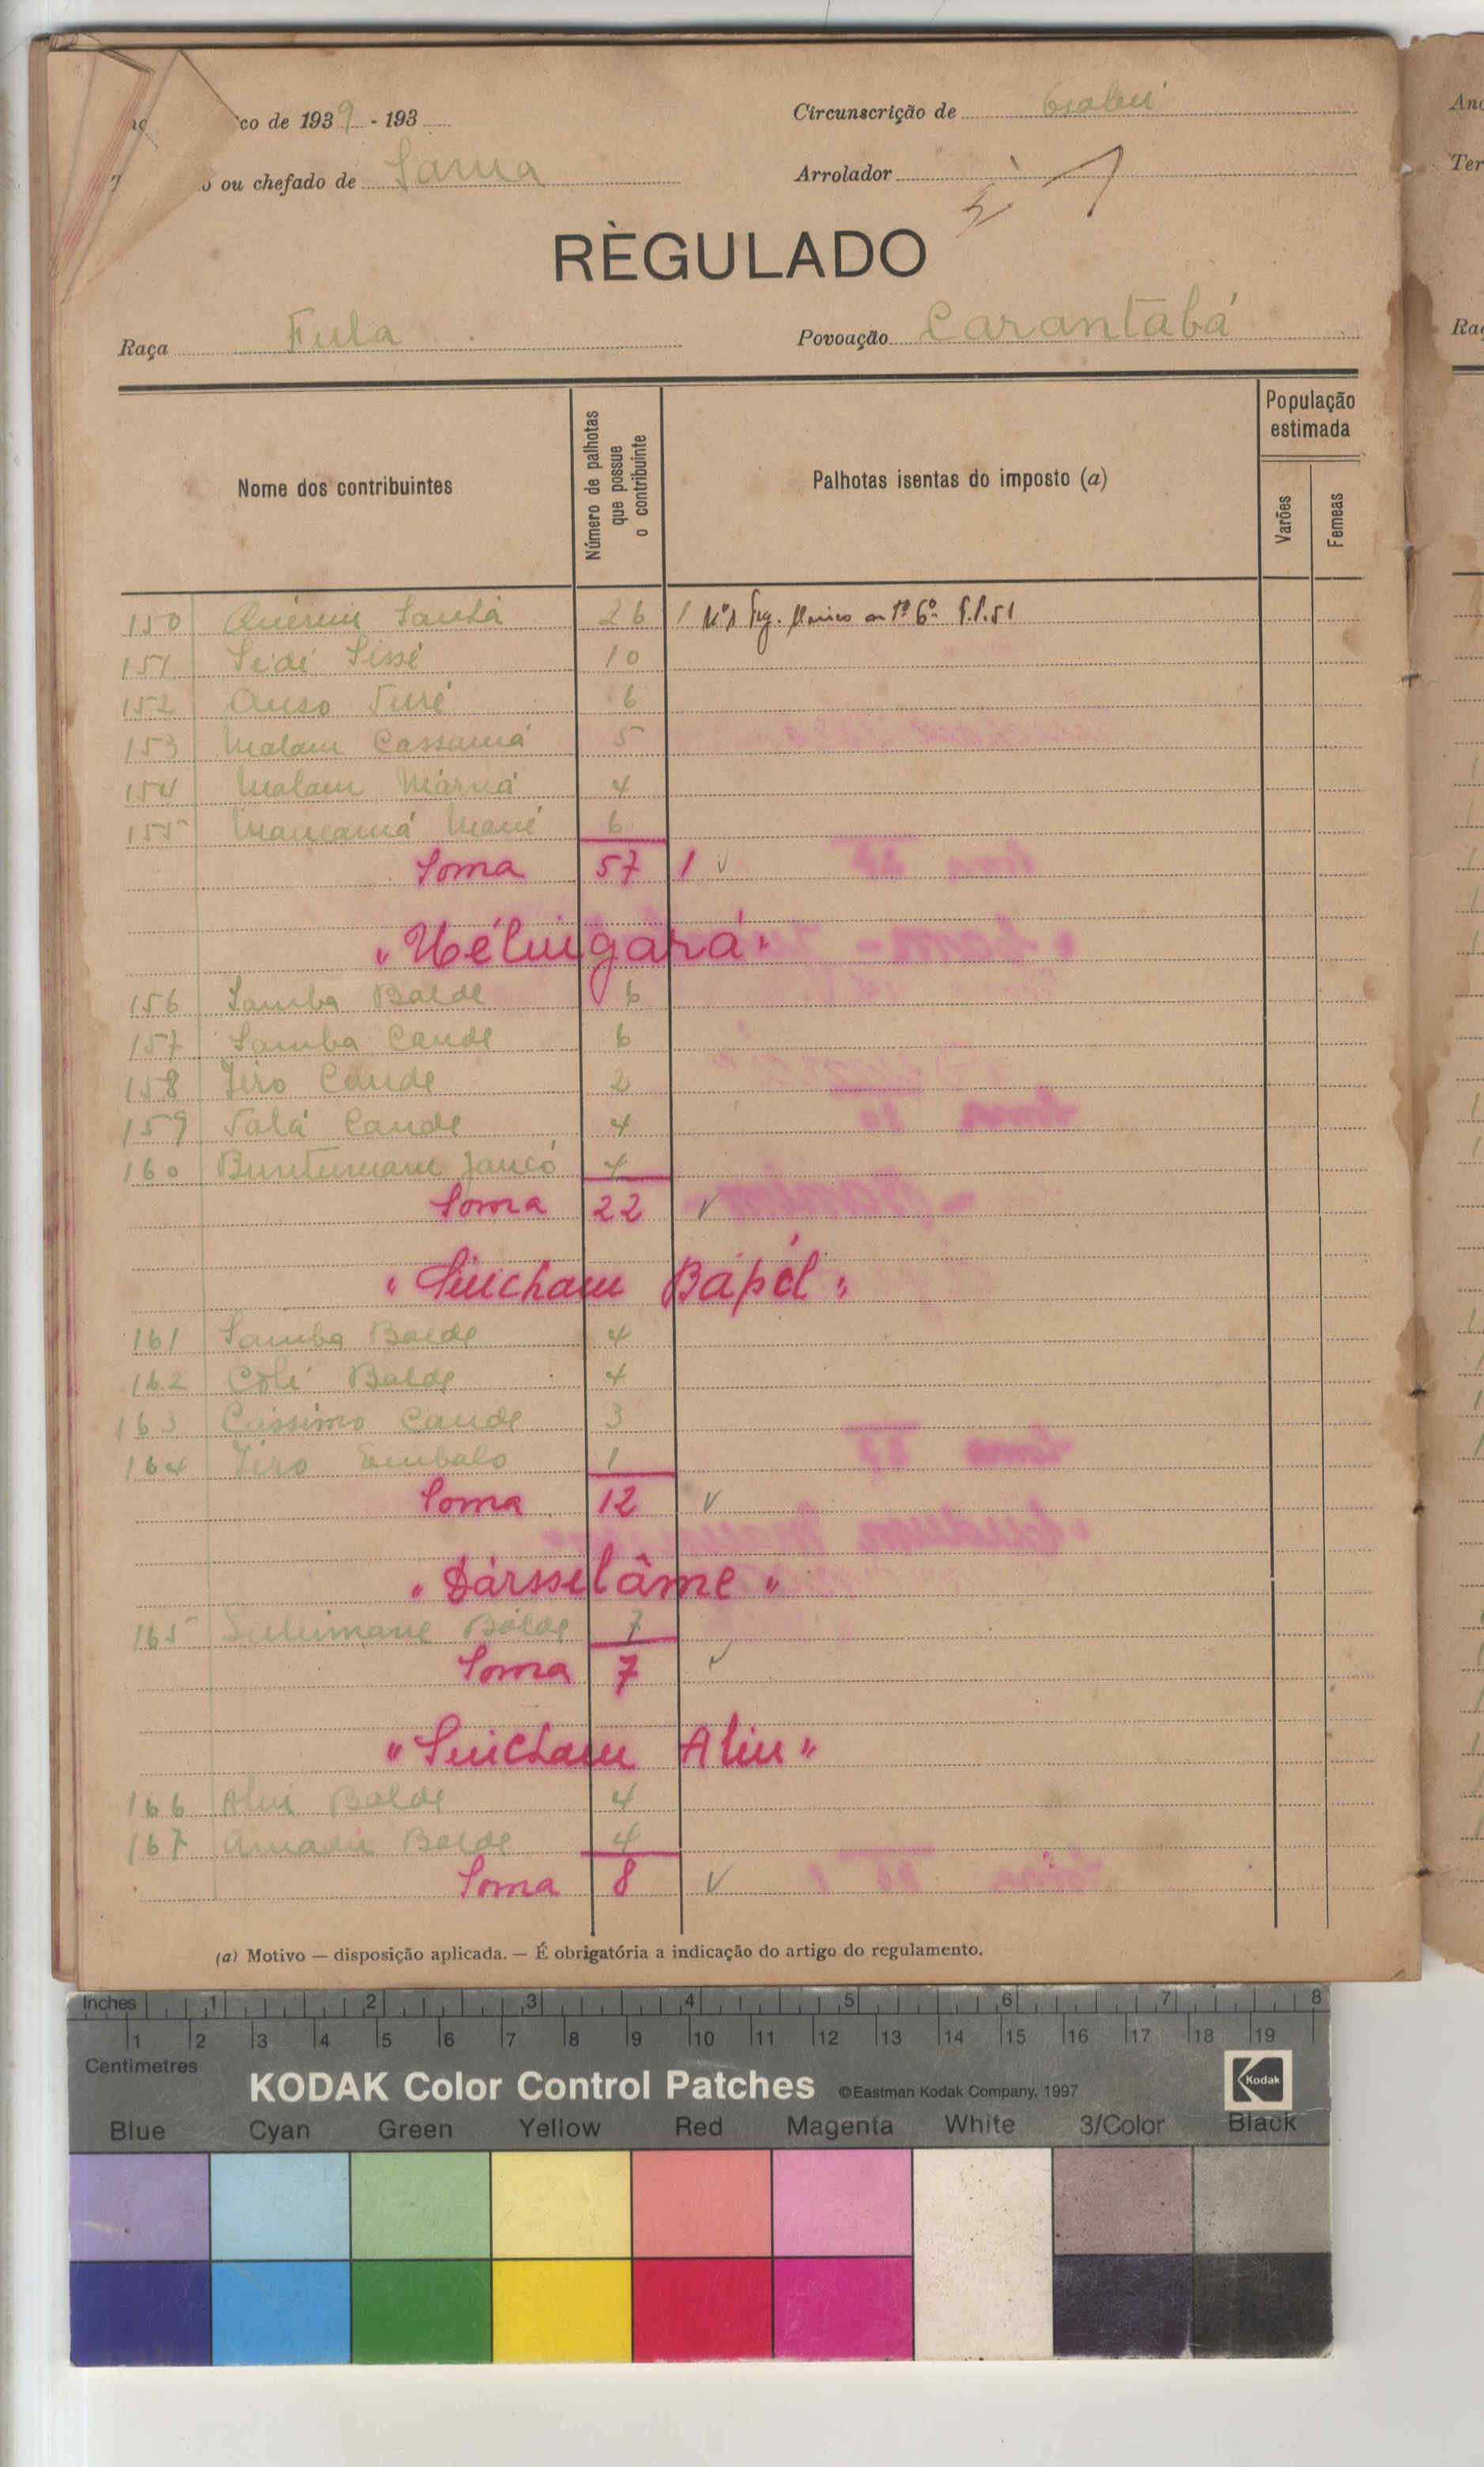 co de 1939 - 193
Circunscrição de Gabú
o ou chefado de Sama
Arrolador
RÈGULADO
Raça Fula
Povoação Carantabá
Nome dos contribuintes
Número de palhotas que possue o contribuinte
Palhotas isentas do imposto (a)
População estimada
Varões
Femeas
150 Quennú Santá 26 1
151 Seidi Sissé 10
152 Anso Turé 6
153 Malam Cassamá 5
154 Malam 4
155 Mané 6
Soma 57 1
156 Samba Balde 6
157 Samba Cande 6
158 Jéro Cande 2
159 Talá Cande 4
160 4
Soma 22
" Sincham Bapél "
161 Samba Balde 4
162 Coli Balde 4
163 Cassimo Cande 3
164 Jéro Embalo 1
Soma 12
" Dàrsselâme "
165 Suleimane Balde 7
Soma 7
" Sincham Aliu "
166 Aliu Balde 4
167 Amadú Balde 4
Soma 8
(a) Motivo — disposição aplicada. — É obrigatória a indicação do artigo do regulamento.
Ano
Ter
Raç
Inches 1 2 3 4 5 6 7 8
1 2 3 4 5 6 7 8 9 10 11 12 13 14 15 16 17 18 19
Centimetres
KODAK Color Control Patches ©Eastman Kodak Company, 1997 Kodak
Blue Cyan Green Yellow Red Magenta White 3/Color Black